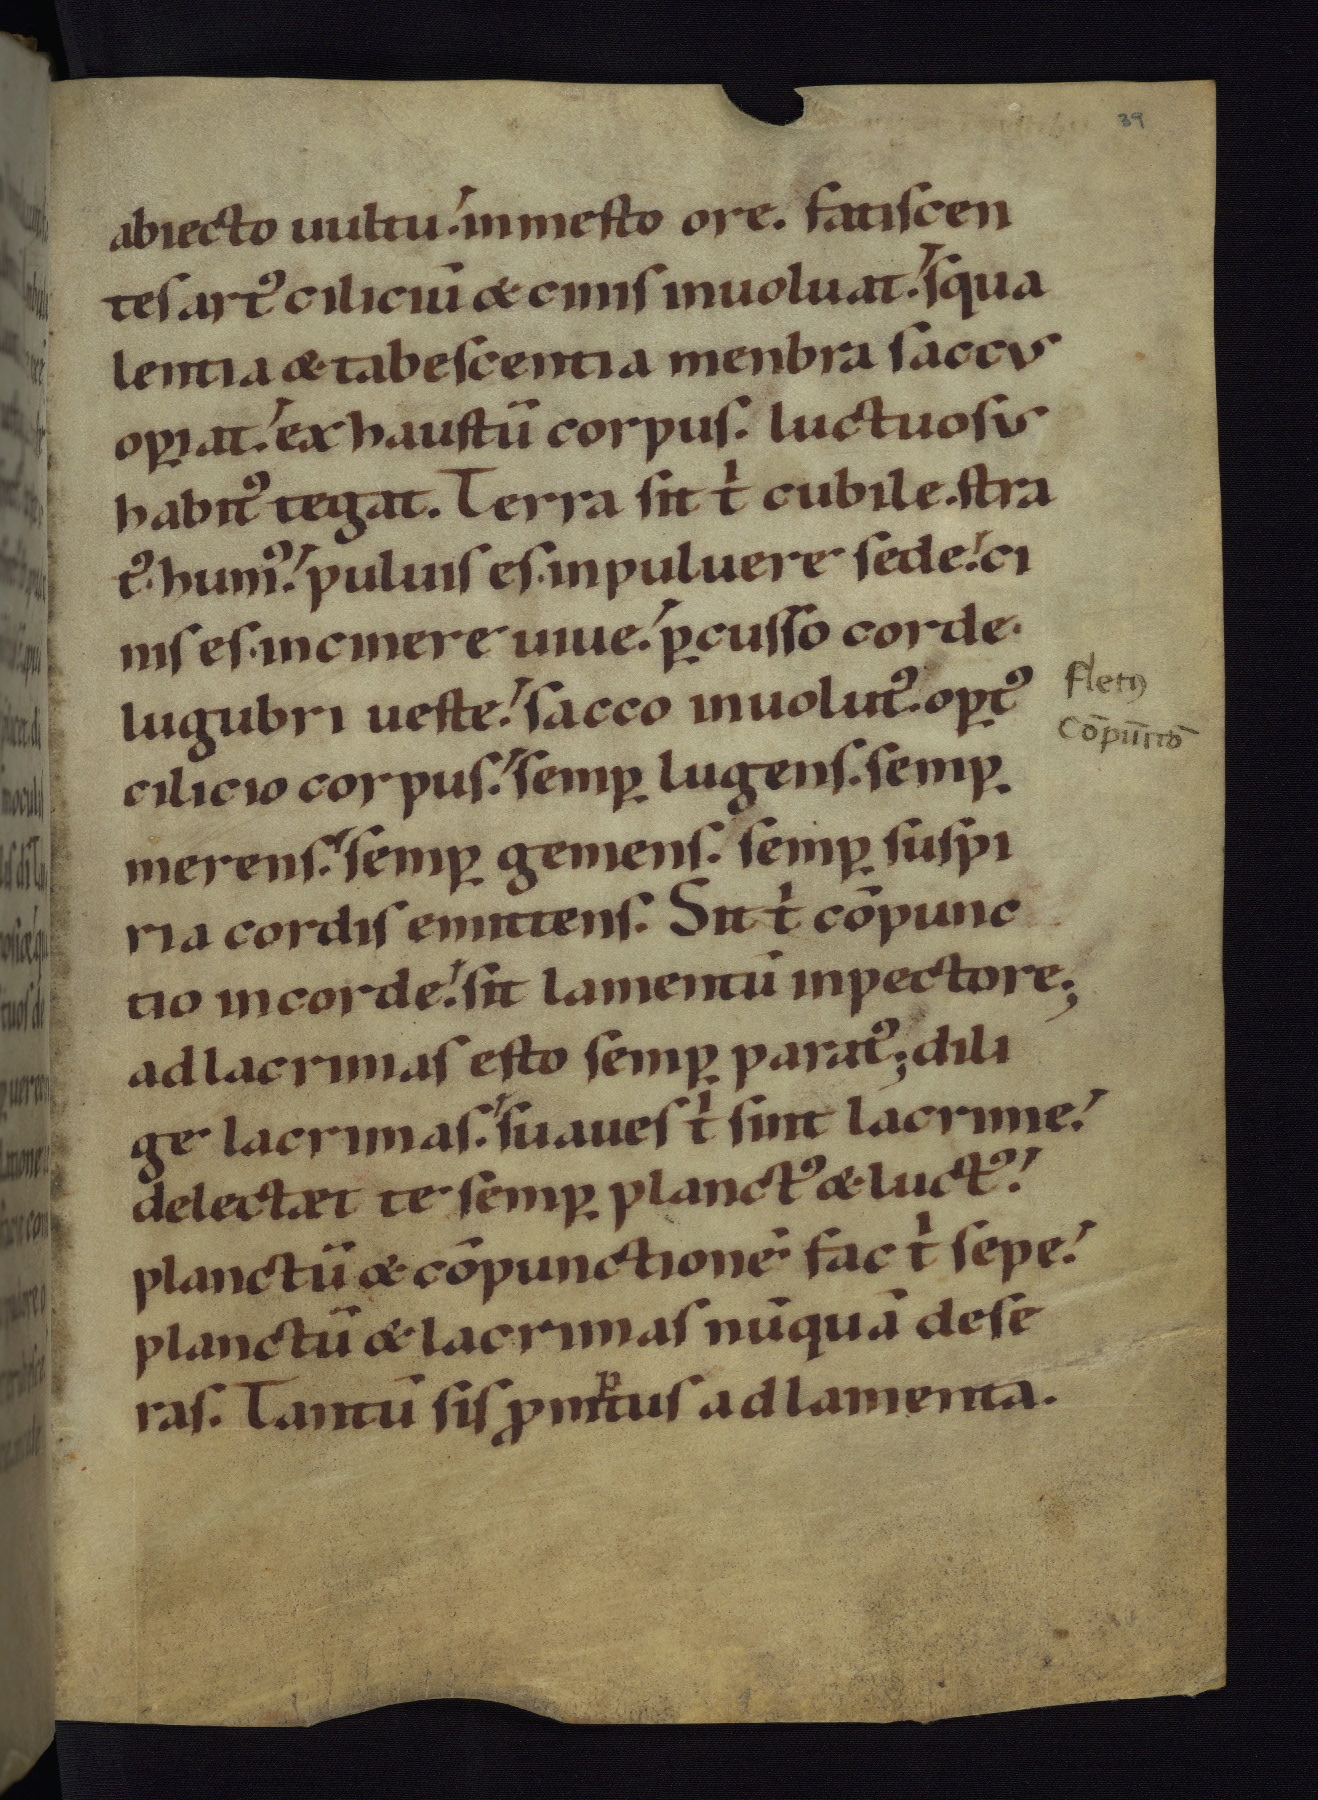 39
abiecto uultu. in mesto ore. fatiscen
tes artꝰ ciliciū & cinis inuoluat. squa
lentia & tabescentia menbra saccus
oꝑiat. exhaustū corpus. luctuosus
habitꝰ tegat. Terra sit tⁱ cubile. stra
tꝰ. humꝰ. puluis es. in puluere sede. ci
nis es. in cinere uiue. ꝑcusso corde.
lugubri ueste. sacco inuolutꝰ. oꝑtꝰ
fletꝰ
cōpūctō
cilicio corpus. semꝑ lugens. semꝑ
merens. semꝑ gemens. semꝑ suspi
ria cordis emittens. Sit tⁱ cōpunc
tio in corde. sit lamentū in pectore;
ad lacrimas esto semꝑ paratꝰ; dili
ge lacrimas. suaues tⁱ sint lacrime.
delectæt te semꝑ planctꝰ & luctꝰ.
planctū & cōpunctionē fac tⁱ sepe.
planctū & lacrimas nūquā dese
ras. Tantū sis ꝓmptus ad lamenta.